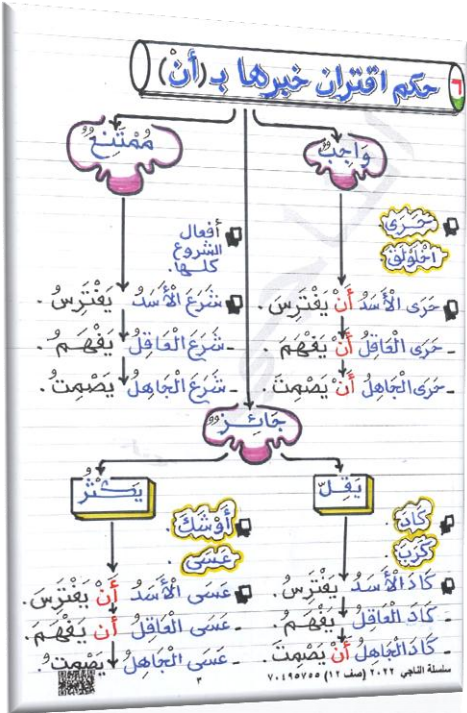 ٦ حكم اقتران خبرها بـ (أنْ)
وَاجِبٌ
حَرَى
اخْلَوْلَقَ
حَرَى الْأَسَدُ أَنْ يَفْتَرِسَ.
- حَرَى الْعَاقِلُ أَنْ يَفْهَمَ.
- حَرَى الْجَاهِلُ أَنْ يَصْمِتَ.
مُمْتَنِعٌ
أفعال
الشروع
كلها.
شَرَعَ الْأَسَدُ يَفْتَرِسُ.
- شَرَعَ الْعَاقِلُ يَفْهَمُ.
- شَرَعَ الْجَاهِلُ يَصْمِتُ.
جَائِزٌ
يَقِلّ
كَادَ
كَرَبَ
كَادَ الْأَسَدُ يَفْتَرِسُ.
- كَادَ الْعَاقِلُ يَفْهَمُ.
- كَادَ الْجَاهِلُ أَنْ يَصْمِتَ.
يَكْثُرُ
أَوْشَكَ.
عَسَى
عَسَى الْأَسَدُ أَنْ يَفْتَرِسَ.
- عَسَى الْعَاقِلُ أَنْ يَفْهَمَ.
- عَسَى الْجَاهِلُ يَصْمِتُ.
سلسلة الناجي ٢٠٢٢ (صف ١٢) ٧٠٤٩٥٧٥٥
٣